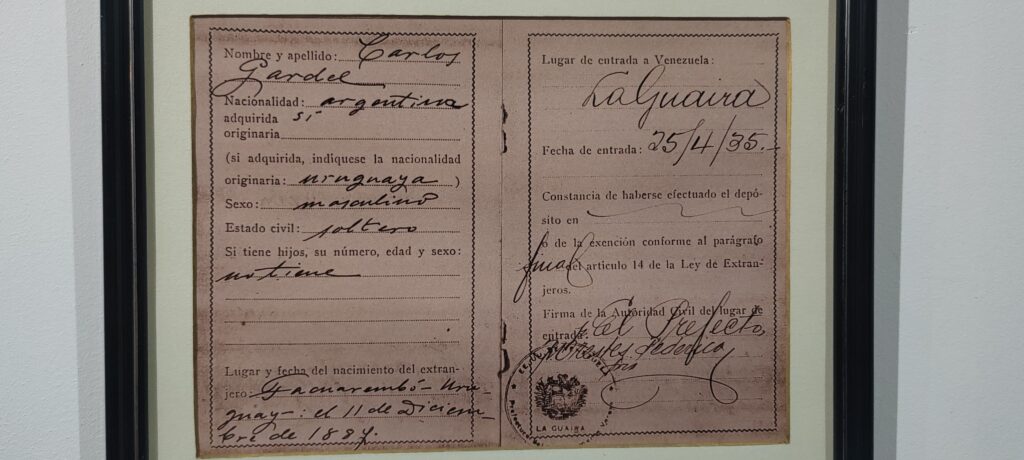 Nombre y apellido: Carlos
Gardel
Nacionalidad: argentina
adquirida si
originaria
(si adquirida, indíquese la nacionalidad
originaria: uruguaya )
Sexo: masculino
Estado civil: soltero
Si tiene hijos, su número, edad y sexo:
no tiene
Lugar y fecha del nacimiento del extran-
jero: Tacuarembó - Uru-
guay -: el 11 de Diciem-
bre de 1887.
Lugar de entrada a Venezuela:
La Guaira
Fecha de entrada: 25/4/35.-
Constancia de haberse efectuado el depó-
sito en
o de la exención conforme al parágrafo
final del artículo 14 de la Ley de Extran-
jeros.
Firma de la Autoridad Civil del lugar de
entrada: El Prefecto
LA GUAIRA